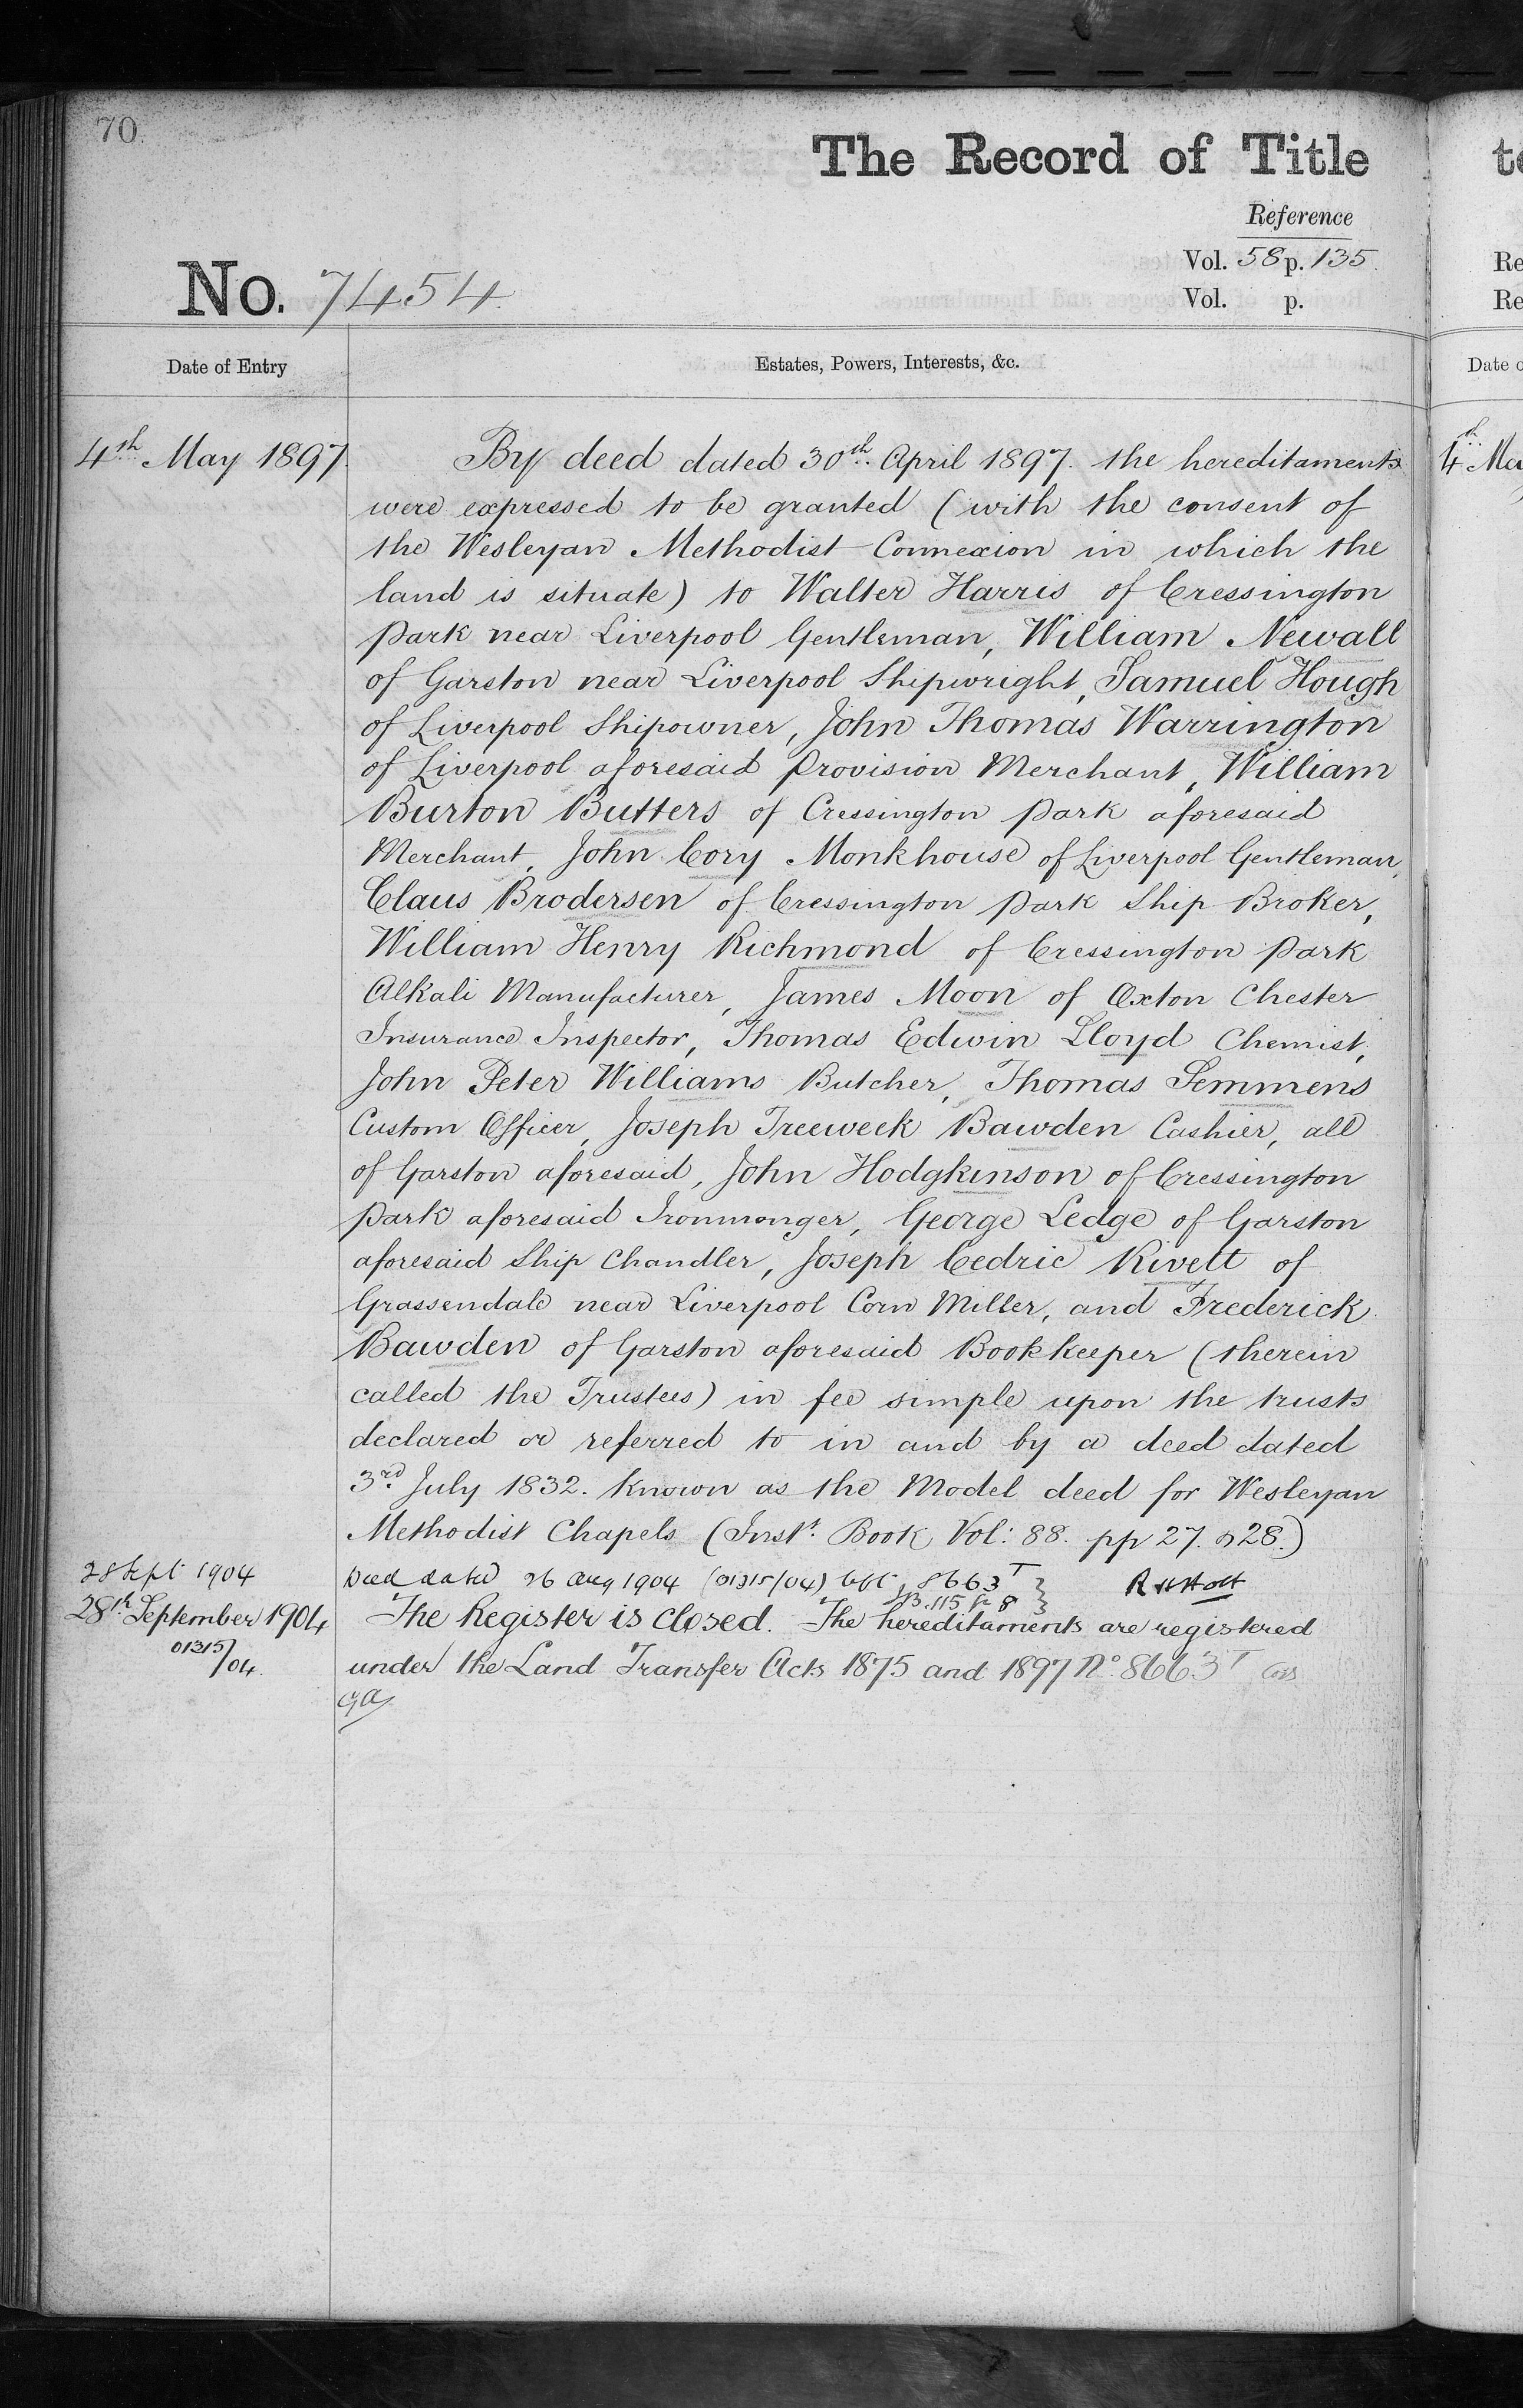 70.
The Record of Title
Reference
Vol. 58 p. 135.
Vol. p.
No. 7454
Date of Entry
Estates, Powers, Interests, &c.
4th May 1897.
By deed dated 30th April 1897. the hereditaments
were expressed to be granted (with the consent of
the Wesleyan Methodist Connexion in which the
land is situate) to Walter Harris of Cressington
Park near Liverpool Gentleman, William Newall
of Garston near Liverpool Shipwright, Samuel Hough
of Liverpool Shipowner, John Thomas Warrington
of Liverpool aforesaid Provision Merchant, William
Burton Butters of Cressington Park aforesaid
Merchant, John Cory Monkhouse of Liverpool Gentleman,
Claus Brodersen of Cressington Park Ship Broker,
William Henry Richmond of Cressington Park
Alkali Manufacturer, James Moon of Oxton Chester
Insurance Inspector, Thomas Edwin Lloyd Chemist,
John Peter Williams Butcher, Thomas Semmens
Custom Officer, Joseph Treeweek Bawden Cashier, all
of Garston aforesaid, John Hodgkinson of Cressington
Park aforesaid Ironmonger, George Ledge of Garston
aforesaid Ship Chandler, Joseph Cedric Rivett of
Grassendale near Liverpool Corn Miller, and Frederick
Bawden of Garston aforesaid Bookkeeper (therein
called the Trustees) in fee simple upon the trusts
declared or referred to in and by a deed dated
3rd July 1832. known as the Model deed for Wesleyan
Methodist Chapels (Inst. Book Vol: 88. pp 27. & 28.)
28 Sept 1904
Deed dated 26 Aug 1904 (01315/04) 8663 T
R H Holt
115 8
28th September 1904
01315/04.
The Register is closed. The hereditaments are registered
under the Land Transfer Acts 1875 and 1897 No. 8663 T
to
Re
Re
Date o
4th Ma